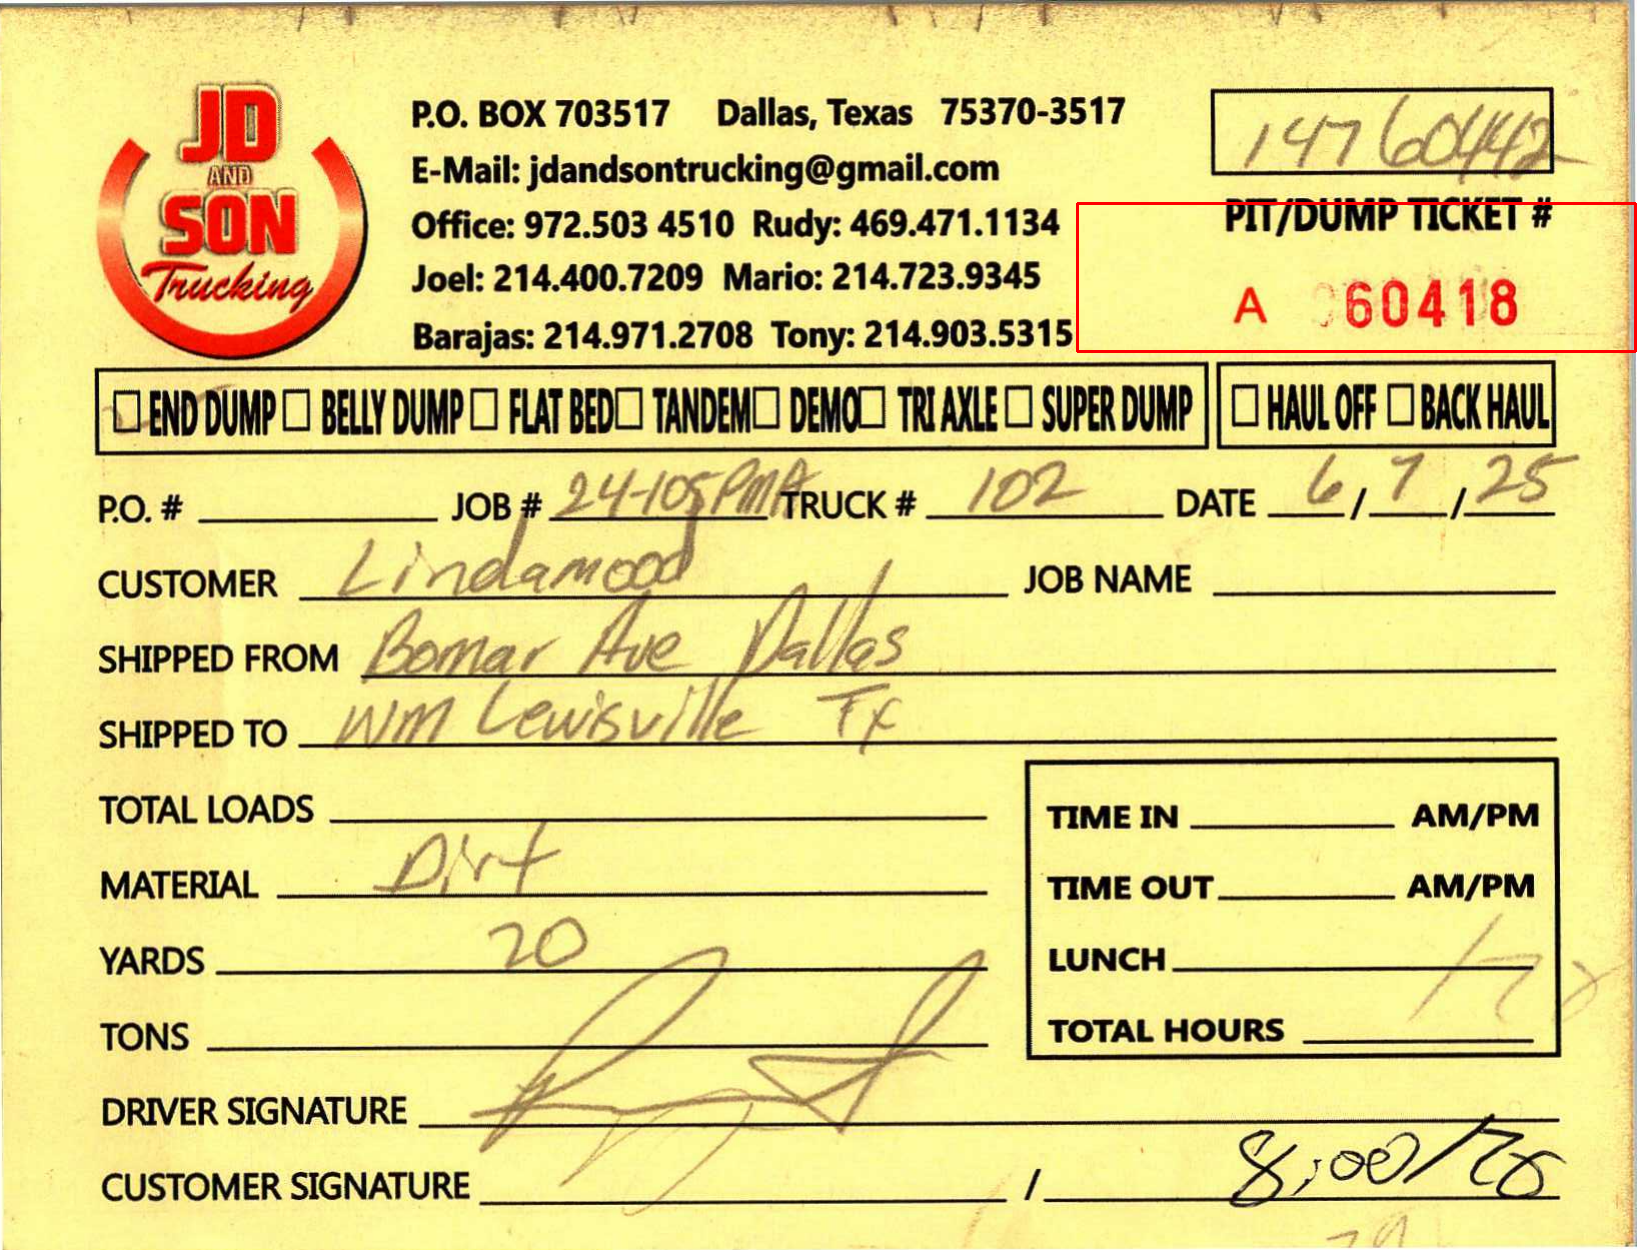 JD
AND
SON
Trucking
P.O. BOX 703517 Dallas, Texas 75370-3517
E-Mail: jdandsontrucking@gmail.com
Office: 972.503 4510 Rudy: 469.471.1134
Joel: 214.400.7209 Mario: 214.723.9345
Barajas: 214.971.2708 Tony: 214.903.5315
14760442
PIT/DUMP TICKET #
A 060418
☐ END DUMP ☐ BELLY DUMP ☐ FLAT BED ☐ TANDEM ☐ DEMO ☐ TRI AXLE ☐ SUPER DUMP ☐ HAUL OFF ☐ BACK HAUL
P.O. # JOB # 24-105PMA TRUCK # 102 DATE 6/7/25
CUSTOMER Lindamood JOB NAME
SHIPPED FROM Bomar Ave Dallas
SHIPPED TO WM Lewisville Tx
TOTAL LOADS
MATERIAL Dirt
YARDS 20
TONS
TIME IN AM/PM
TIME OUT AM/PM
LUNCH
TOTAL HOURS
DRIVER SIGNATURE
CUSTOMER SIGNATURE /